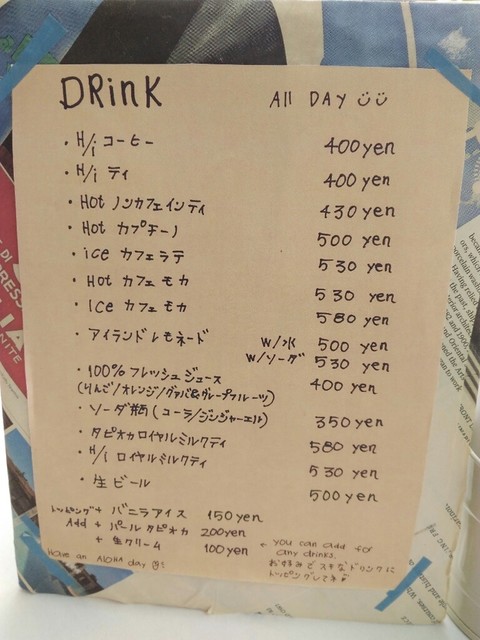 DRinK All DAY
・H/i コーヒー 400 yen
・H/i ティ 400 yen
・Hot ノンカフェインティ 430 yen
・Hot カプチーノ 500 yen
・ice カフェラテ 530 yen
・Hot カフェモカ 530 yen
・Ice カフェモカ 580 yen
・アイランドレモネード w/水 500 yen
w/ソーダ 530 yen
・100% フレッシュジュース 400 yen
(りんご/オレンジ/グァバ&グレープフルーツ)
・ソーダ瓶(コーラ/ジンジャーエル) 350 yen
・タピオカロイヤルミルクティ 580 yen
・H/i ロイヤルミルクティ 530 yen
・生ビール 500 yen
トッピング+ バニラアイス 150 yen
Add + パールタピオカ 200 yen
+ 生クリーム 100 yen ← you can add for
any drinks.
Have an ALOHA day
お好みでスキなドリンクに
トッピングしてネ